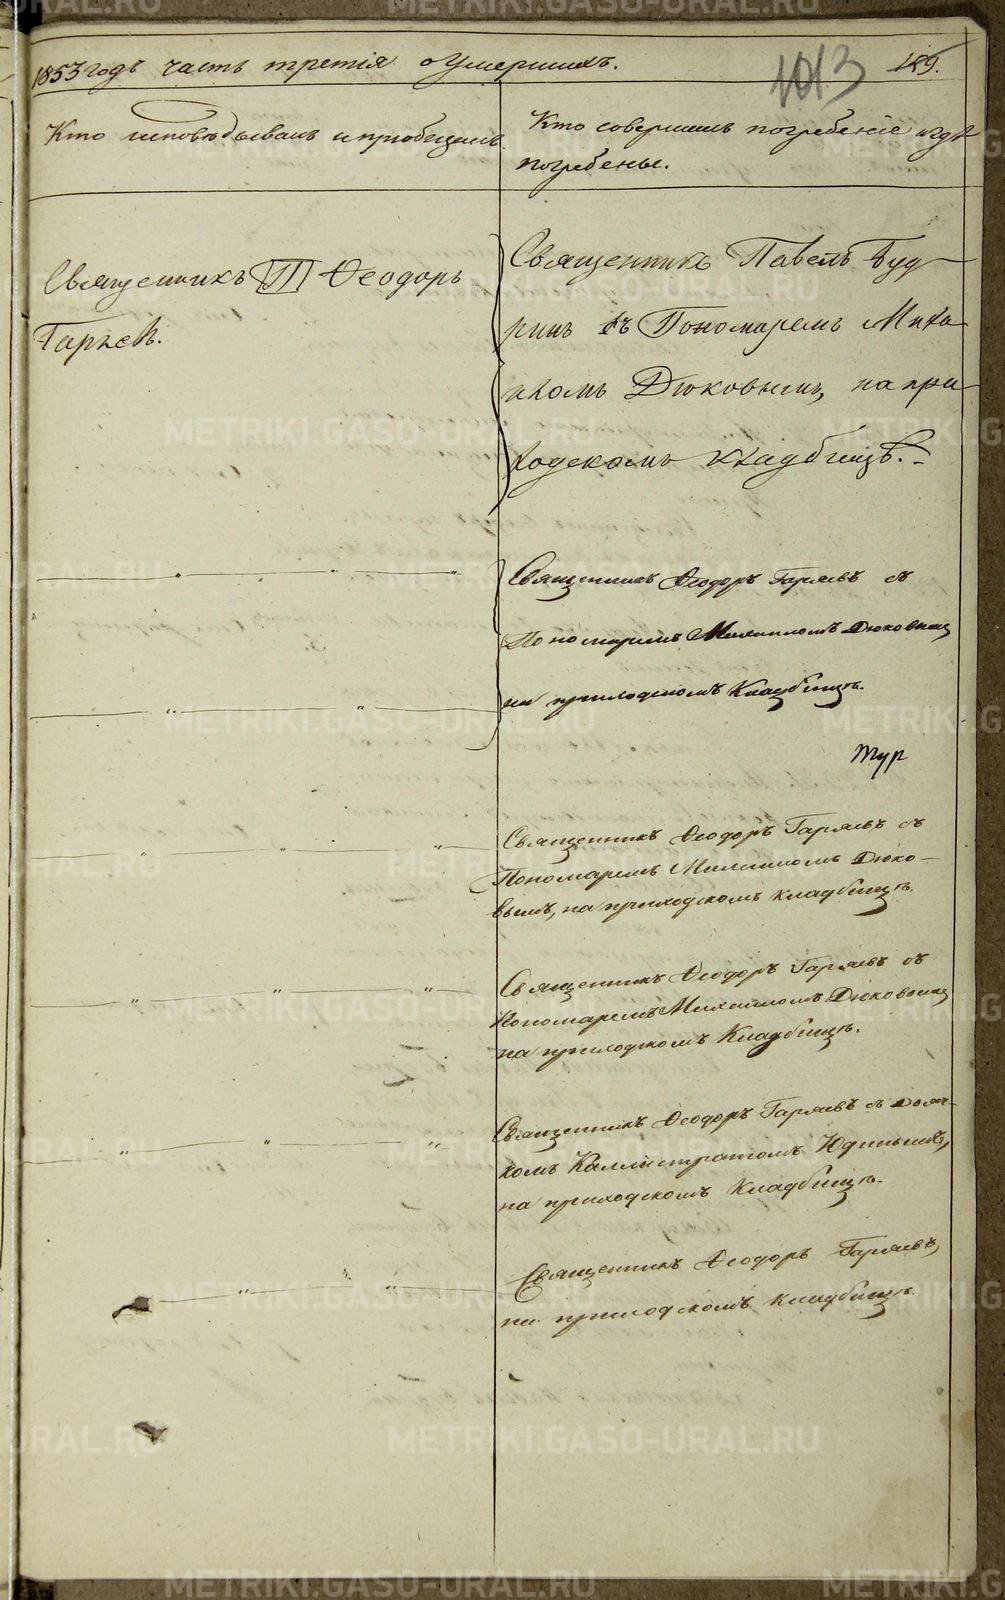 1853 годъ часть третія о умершихъ.
1013
185.
Кто исповѣдывалъ и пріобщалъ.
Кто совершалъ погребеніе и гдѣ
погребены.
Священникъ Ѳеодоръ
Гаряев.
Священникъ Павелъ Буд-
ринъ съ Пономаремъ Миха-
иломъ Дюковымъ, на при-
ходскомъ кладбищѣ.
Священникъ Ѳеодоръ Гаряевъ съ
Пономаремъ Михаиломъ Дюковымъ
на приходскомъ Кладбищѣ.
Священникъ Ѳеодоръ Гаряевъ съ
Пономаремъ Михаиломъ Дюко-
вымъ, на приходскомъ кладбищѣ.
Священникъ Ѳеодоръ Гаряевъ съ
Пономаремъ Михаиломъ Дюковымъ
на приходскомъ Кладбищѣ.
Священникъ Ѳеодоръ Гаряевъ съ Дьяч-
комъ Каллистратомъ Юдинымъ,
на приходскомъ Кладбищѣ.
Священникъ Ѳеодоръ Гаряевъ,
на приходскомъ кладбищѣ.
METRIKI.GASO-URAL.RU